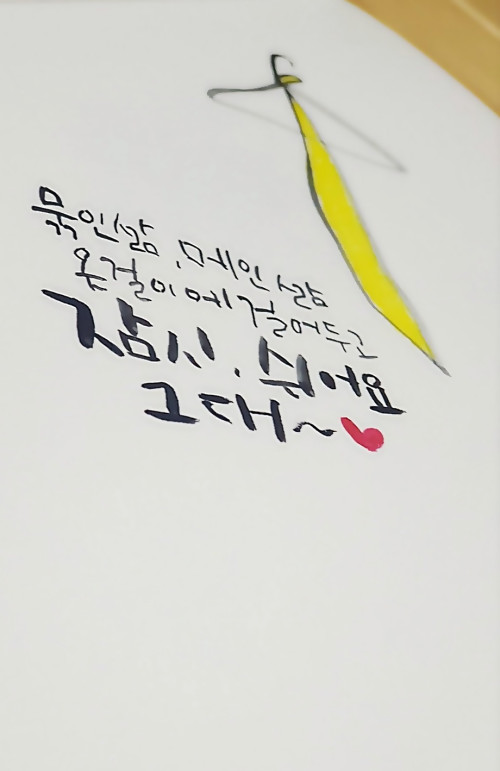 묶인삶, 메인 삶
옷걸이에 걸어두고
잠시, 쉬어요
그대~